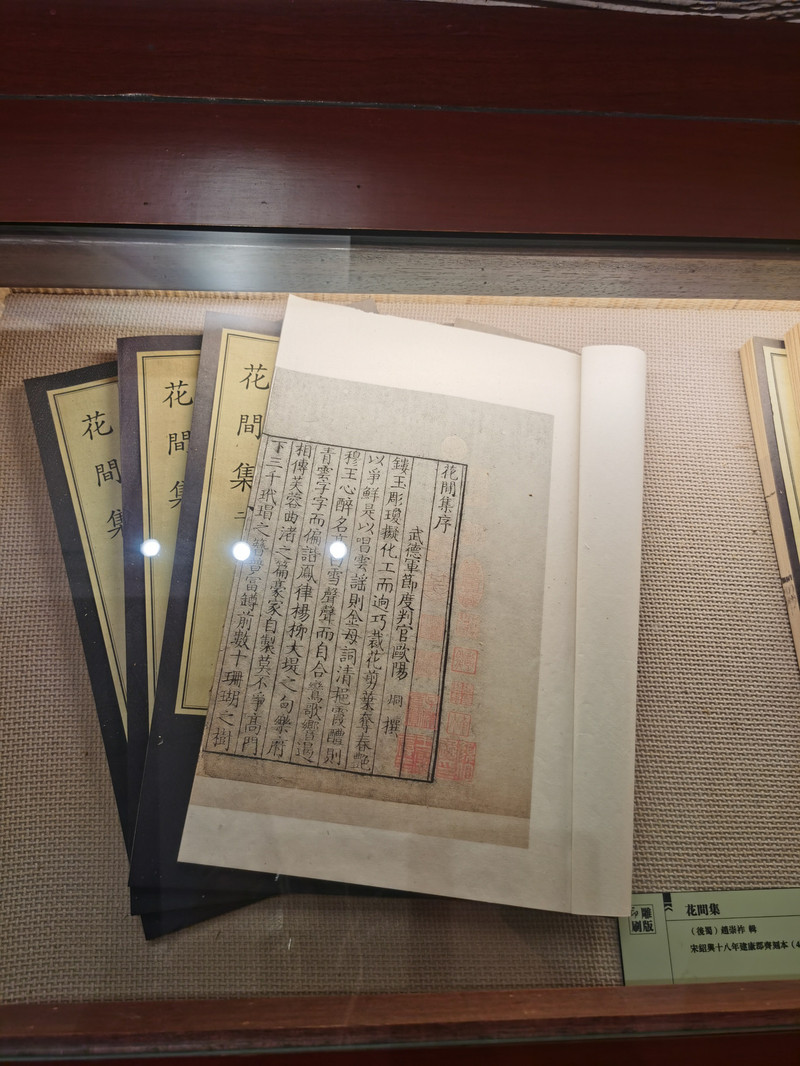 花間集
花間集
花間集
花間集序
武德軍節度判官歐陽 烱 撰
鏤玉彫瓊擬化工而逈巧裁花剪葉奪春艷
以爭鮮是以唱雲謠則金母詞清挹霞醴則
穆王心醉名高白雪聲聲而自合鸞歌響遏
青雲字字而偏諧鳳律楊柳大堤之句樂府
相傳芙蓉曲渚之篇豪家自製莫不爭高門
下三千玳瑁之簪競富罇前數十珊瑚之樹
雕版
印刷
花間集
（後蜀）趙崇祚 輯
宋紹興十八年建康郡齊刻本（4